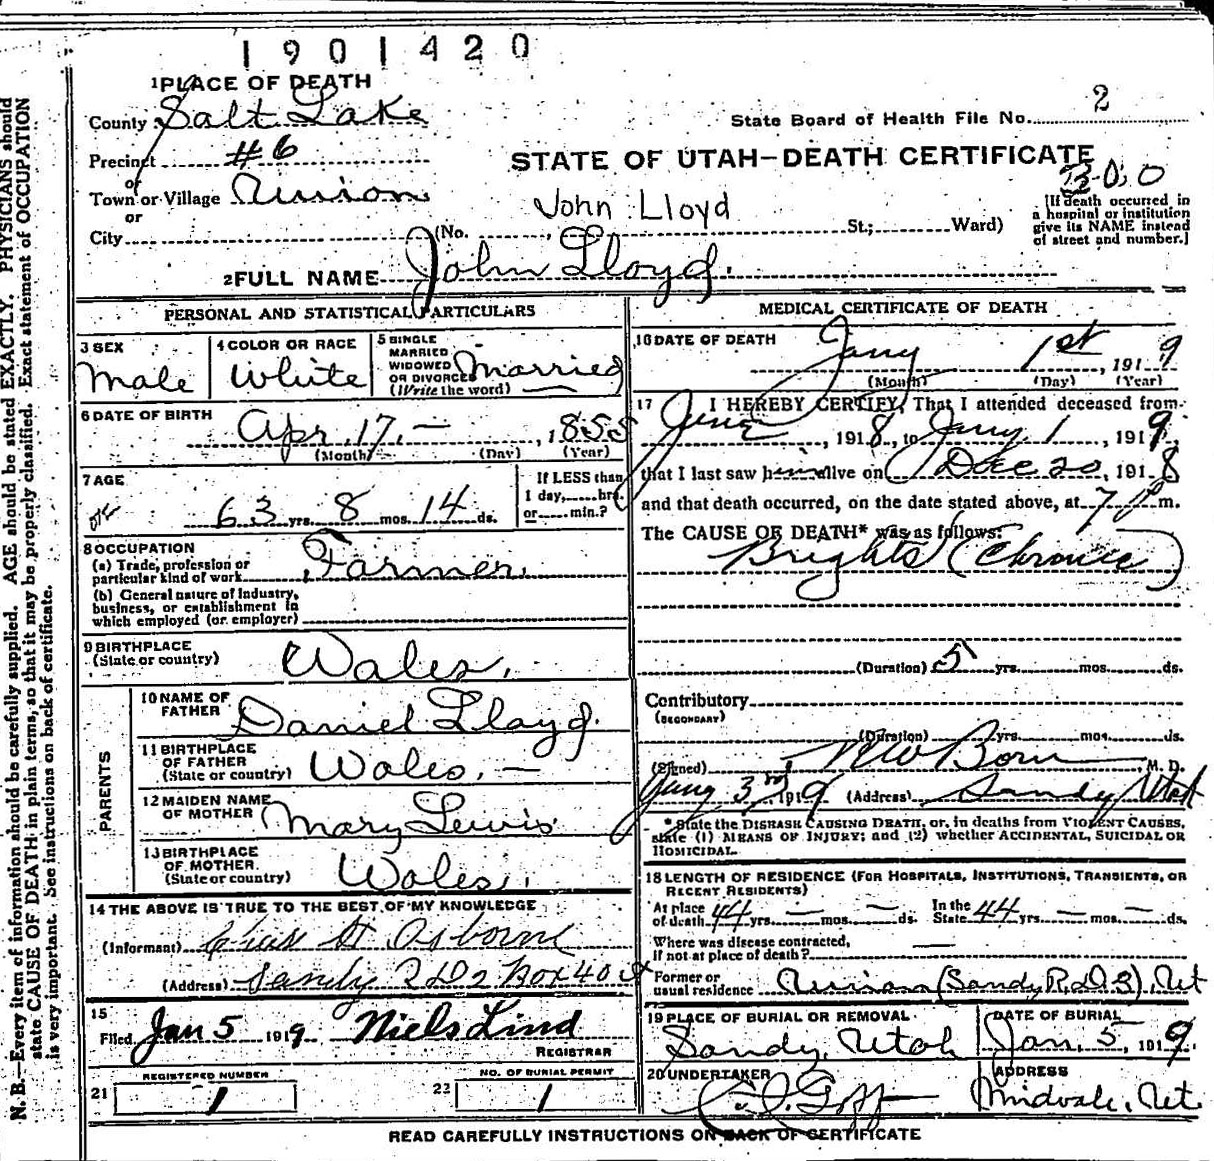 1901420
1 PLACE OF DEATH
County Salt Lake
State Board of Health File No. 2
Precinct #6
STATE OF UTAH—DEATH CERTIFICATE
or
Town or Village Union
or
City
John Lloyd
(No. St.; Ward)
[If death occurred in
a hospital or institution
give its NAME instead
of street and number.]
2 FULL NAME John Lloyd.
PERSONAL AND STATISTICAL PARTICULARS
3 SEX
Male
4 COLOR OR RACE
White
5 SINGLE
MARRIED
WIDOWED
OR DIVORCED
(Write the word)
Married
6 DATE OF BIRTH
Apr. 17. — , 1855
(Month) (Day) (Year)
7 AGE
63 yrs. 8 mos. 14 ds.
If LESS than
1 day, hrs.
or min.?
8 OCCUPATION
(a) Trade, profession or
particular kind of work Farmer
(b) General nature of Industry,
business, or establishment in
which employed (or employer)
9 BIRTHPLACE
(State or country) Wales.
PARENTS
10 NAME OF
FATHER Daniel Lloyd.
11 BIRTHPLACE
OF FATHER
(State or country) Wales. —
12 MAIDEN NAME
OF MOTHER Mary Lewis
13 BIRTHPLACE
OF MOTHER
(State or country) Wales.
14 THE ABOVE IS TRUE TO THE BEST OF MY KNOWLEDGE
(Informant) Chas H. Osborne
(Address) Sandy R D 2 Box 40
15
Filed Jan 5 1919 Niels Lind
REGISTRAR
REGISTERED NUMBER
21 1
NO. OF BURIAL PERMIT
22 1
MEDICAL CERTIFICATE OF DEATH
16 DATE OF DEATH
Jany 1st, 1919
(Month) (Day) (Year)
17 I HEREBY CERTIFY, That I attended deceased from
June, 1918, to Jany. 1, 1919,
that I last saw him alive on Dec 20, 1918
and that death occurred, on the date stated above, at 7 P m.
The CAUSE OF DEATH* was as follows:
Brights (Chronic)
(Duration) 5 yrs. mos. ds.
Contributory
(SECONDARY)
(Duration) yrs. mos. ds.
(Signed) M.D.
Jany 3rd, 1919 (Address) Sandy Utah
* State the DISEASE CAUSING DEATH, or, in deaths from VIOLENT CAUSES,
state (1) MEANS OF INJURY; and (2) whether ACCIDENTAL, SUICIDAL OR
HOMICIDAL.
18 LENGTH OF RESIDENCE (FOR HOSPITALS, INSTITUTIONS, TRANSIENTS, OR
RECENT RESIDENTS)
At place
of death 44 yrs. — mos. — ds.
In the
State 44 yrs. — mos. — ds.
Where was disease contracted,
if not at place of death? —
Former or
usual residence Union (Sandy R.D.3), Ut
19 PLACE OF BURIAL OR REMOVAL
Sandy, Utah
DATE OF BURIAL
Jan. 5, 1919.
20 UNDERTAKER
Goff
ADDRESS
Midvale, Ut.
READ CAREFULLY INSTRUCTIONS ON BACK OF CERTIFICATE
N. B.—Every item of information should be carefully supplied. AGE should be stated EXACTLY. PHYSICIANS should
state CAUSE OF DEATH in plain terms, so that it may be properly classified. Exact statement of OCCUPATION
is very important. See instructions on back of certificate.